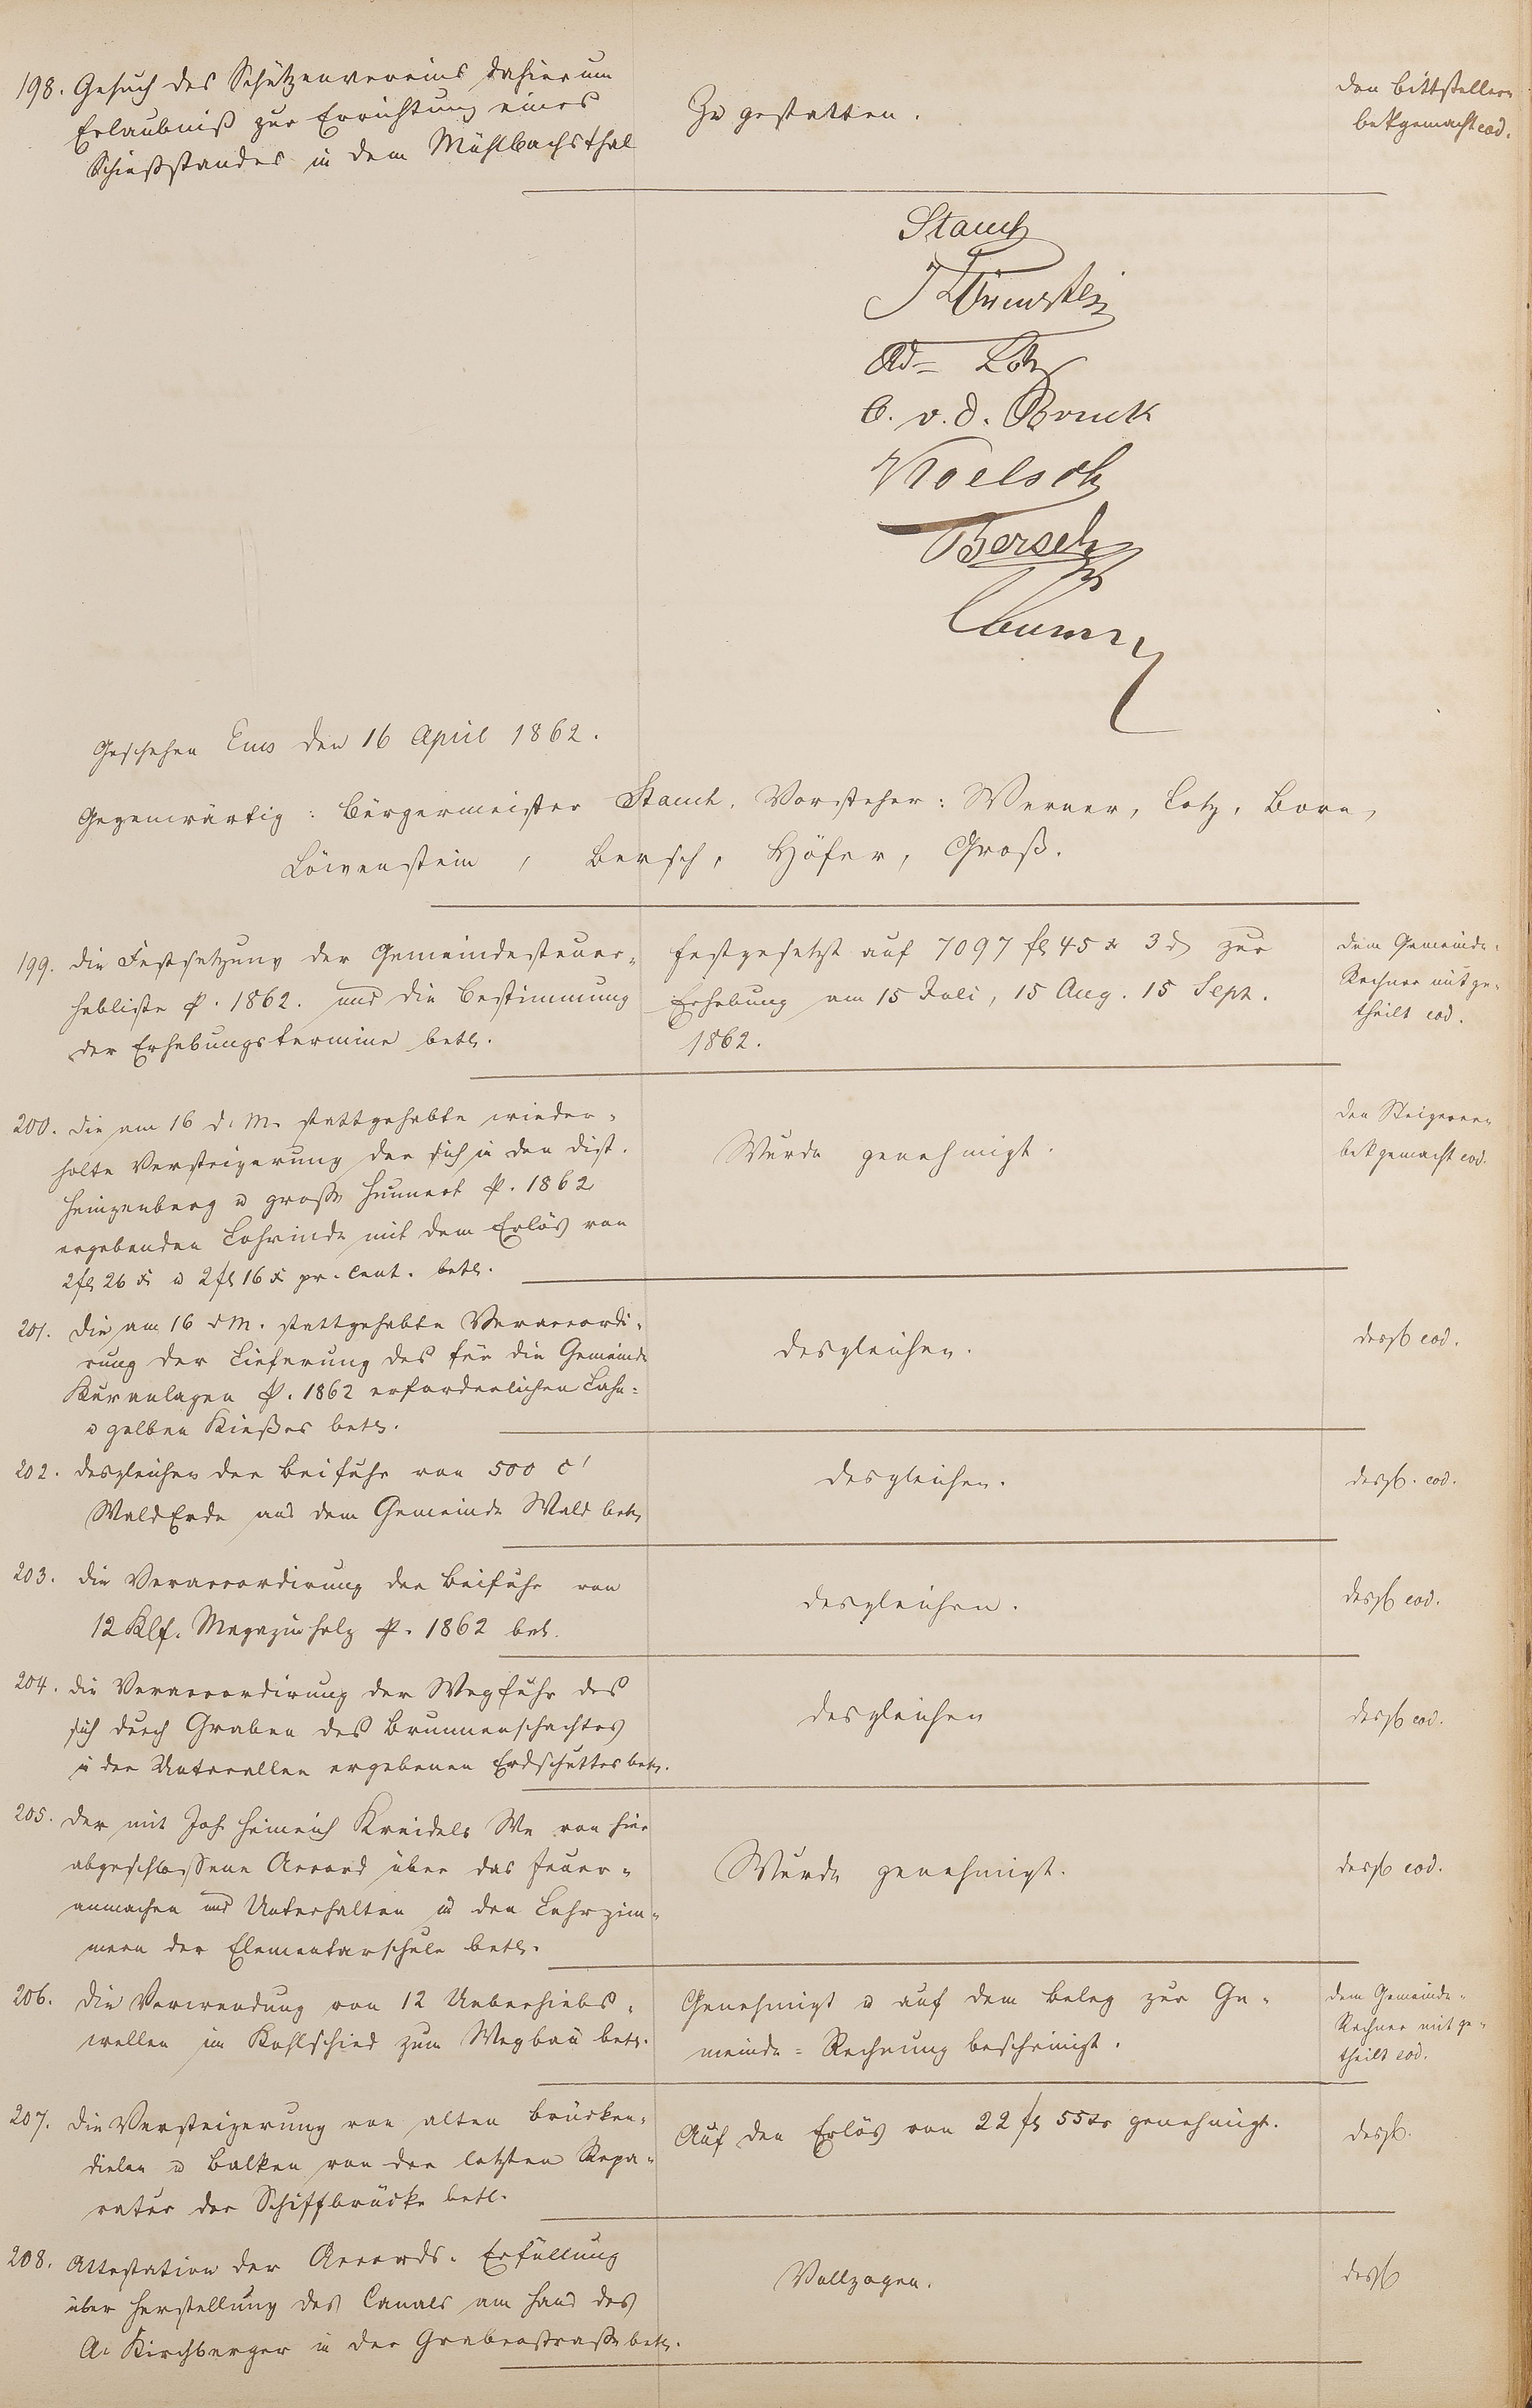 198. Gesuch des Schützenvereins dahier um
Erlaubniß zur Errichtung eines
Schießstandes in dem Mühlbachsthal
Zu gestatten.
Den Bittstellern
bekgemacht eod.
Stauch
J Löwenstein
Ad= Lotz
C. v. d. Bruck
Koelsch
Bersch
Geschehen Ems den 16 April 1862.
Gegenwärtig: Bürgermeister Stauch. Vorsteher: Werner, Lotz, Born,
Löwenstein, Bersch, Höfer, Groß.
199. Die Festsetzung der Gemeindesteuer-
hebliste p. 1862. und die Bestimmung
der Erhebungstermine betr.
Festgesetzt auf 7097 fl 45 x 3 d zur
Erhebung am 15 Juli, 15 Aug. 15 Sept.
1862.
Dem Gemeinde-
Rechner mitge-
theilt eod.
200. Die am 16 d. M. stattgehabte wieder-
holte Versteigerung der sich in den Dist.
Heinzenberg u große Hunnert p. 1862
ergebenden Lohrinde mit dem Erlös von
2 fl 26 x u 2 fl 16 x pr. Cent. betr.
Wurde genehmigt.
Den Steigerern
bekgemacht eod.
201. Die am 16 d M. stattgehabte Veraccordi-
rung der Lieferung des für die Gemeinde
Kuranlagen p. 1862 erforderlichen Lahn-
u gelben Kießes betr.
desgleichen.
desgl eod.
202. Desgleichen der Beifuhr von 500 c'
Wald Erde aus dem Gemeinde Wald betr
desgleichen.
desgl. eod.
203. Die Veraccordirung der Beifuhr von
12 Klf. Magazinholz p. 1862 betr.
desgleichen.
desgl eod.
204. Die Veraccordirung der Wegfuhr des
sich durch Graben des Brunnenschachtes
in der Unterallee ergebenen Erdschuttes betr.
desgleichen
desgl eod.
205. Der mit Joh. Heinrich Kreidels We von hier
abgeschlossene Accord über das Feuer-
anmachen und Unterhalten in den Lehrzim-
mern der Elementarschule betr.
Wurde genehmigt.
desgl eod.
206. Die Verwendung von 12 Ueberhiebs-
wellen im Kohlschied zum Wegbau betr.
Genehmigt u auf dem Beleg zur Ge-
meinde-Rechnung bescheinigt.
Dem Gemeinde-
Rechner mitge-
theilt eod.
207. Die Versteigerung von alten Brücken-
dielen u Balken von der letzten Repa-
ratur der Schiffbrücke betr.
Auf den Erlös von 22 fl 55 xr genehmigt.
desgl.
208. Attestation der Accords-Erfüllung
über Herstellung des Canals am Haus des
A. Kirchberger in der Grabenstraße betr.
Vollzogen.
desgl